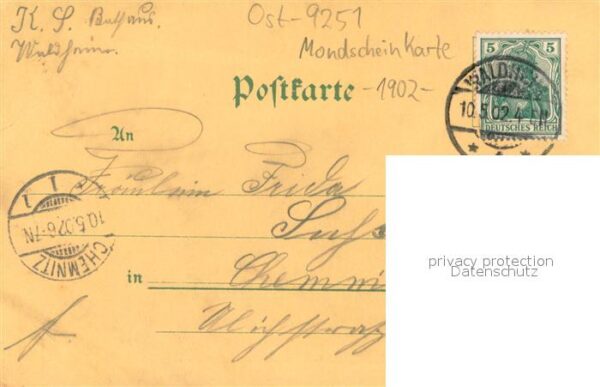 K. S.
Waldheim.
Ost-9251
Mondschein Karte
-1902-
Postkarte
5 5
DEUTSCHES REICH
WALDH
10.5.02.4
An
Fräulein Frida
CHEMNITZ
10.5.02.6-7N
1
in Chemni
privacy protection
Datenschutz